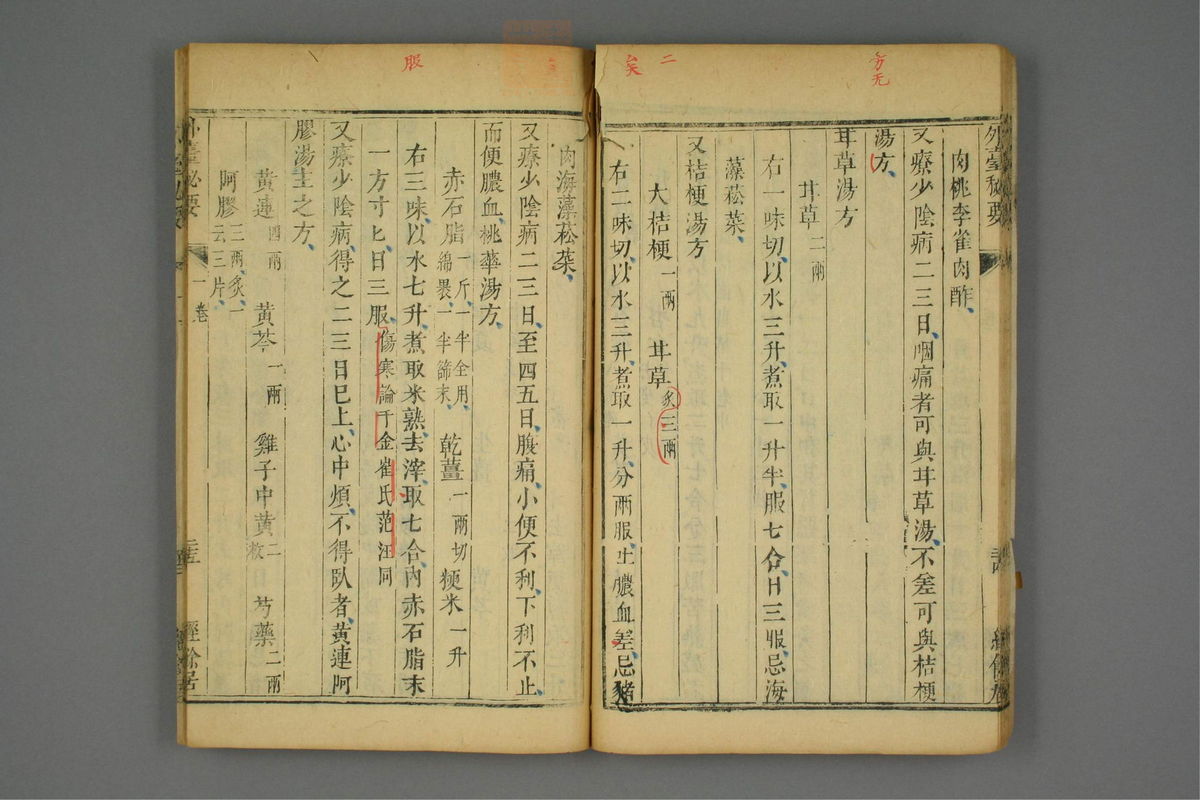 方无
二
矣
外臺秘要
肉桃李雀肉酢
又療少陰病二三日咽痛者可與甘草湯不差可與桔梗
湯方
甘草湯方
甘草二兩
右一味切以水三升煮取一升半服七合日三服忌海
藻菘菜
又桔梗湯方
大桔梗一兩 甘草炙三兩
右二味切以水三升煮取一升分兩服吐膿血差忌豬
服
肉海藻菘菜
又療少陰病二三日至四五日腹痛小便不利下利不止
而便膿血桃華湯方
赤石脂一斤一半全用綿裹一半篩末 乾薑一兩切 粳米一升
右三味以水七升煮取米熟去滓取七合內赤石脂末
一方寸匕日三服傷寒論千金崔氏范汪同
又療少陰病得之二三日已上心中煩不得臥者黃連阿
膠湯主之方
黃連四兩 黃芩一兩 雞子中黃二枚 芍藥二兩
阿膠三兩炙一云三片
外臺秘要 一卷 經餘居